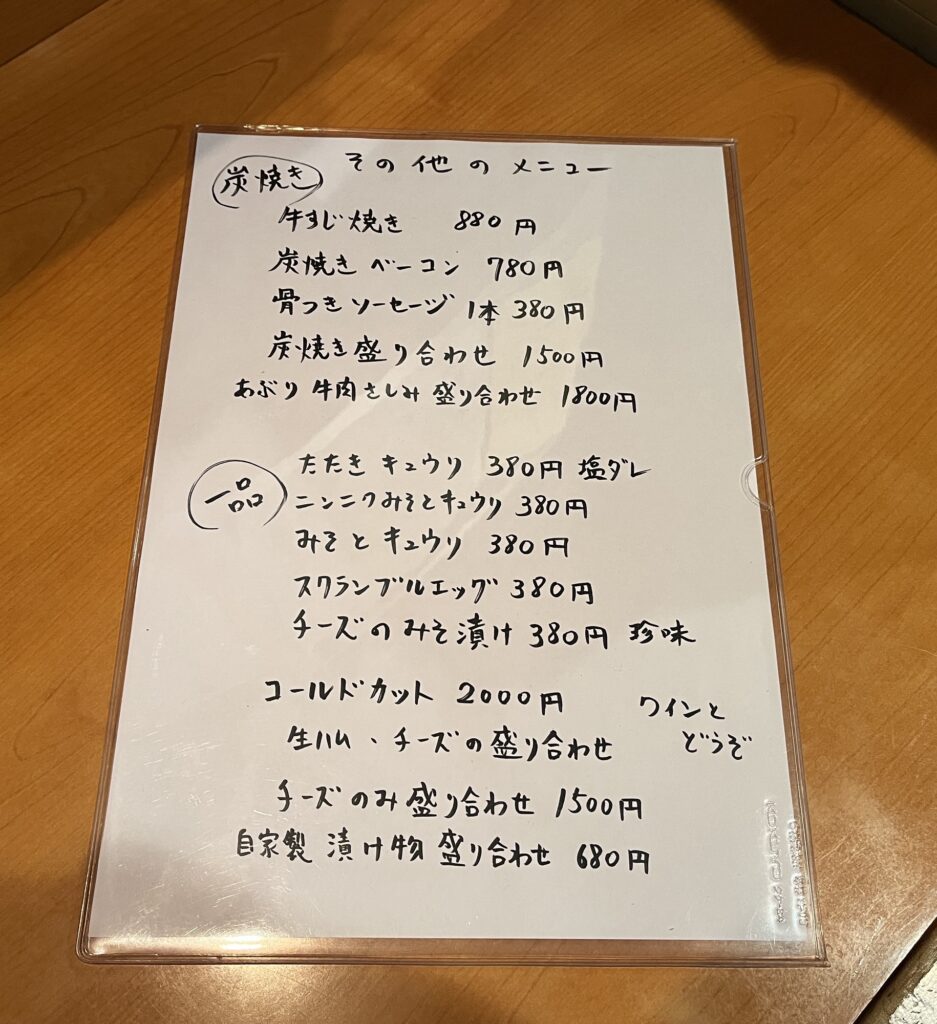 その他のメニュー
炭焼き
牛すじ焼き 880円
炭焼きベーコン 780円
骨つきソーセージ 1本 380円
炭焼き盛り合わせ 1500円
あぶり牛肉さしみ盛り合わせ 1800円
一品
たたきキュウリ 380円 塩ダレ
ニンニクみそとキュウリ 380円
みそとキュウリ 380円
スクランブルエッグ 380円
チーズのみそ漬け 380円 珍味
コールドカット 2000円
ワインと
どうぞ
生ハム・チーズの盛り合わせ
チーズのみ盛り合わせ 1500円
自家製 漬け物 盛り合わせ 680円